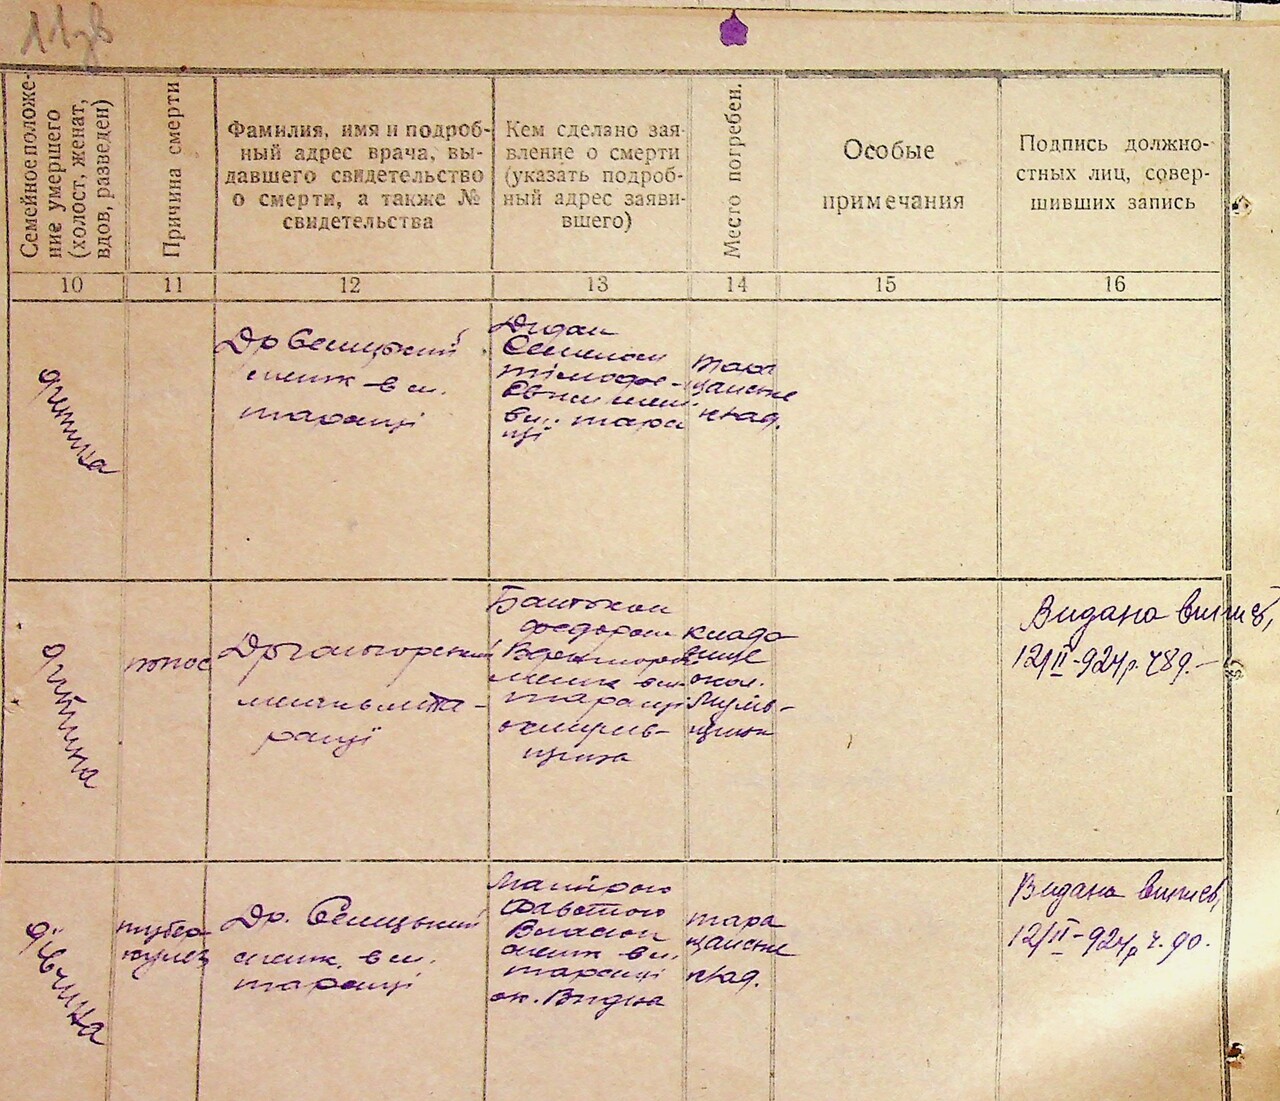 11зв
Семейное положе-
ние умершего
(холост, женат,
вдов, разведен)
Причина смерти
Фамилия, имя и подроб-
ный адрес врача, вы-
давшего свидетельство
о смерти, а также №
свидетельства
Кем сделано зая-
вление о смерти
(указать подроб-
ный адрес заяви-
вшего)
Место погребен.
Особые
примечания
Подпись должно-
стных лиц, совер-
шивших запись
10
11
12
13
14
15
16
дитина
Др Селицький
меж. в м.
таращі
Дидом
Семеном
в м. тара
щі
тара
щанске
клад.
дитина
Др
таращі
Батьком
федором
меж в м.
таращі
щина
клада
вище
окол.
щина
Видана випис,
12/II-924р. ч 89.-
дівчина
тубер-
кулез
Др. Селицький
меж. в м.
таращі
Матірою
Власюк
меж в м.
таращі
ок.
тара
щанске
клад.
Видана випис,
12/II-924р ч. 90.